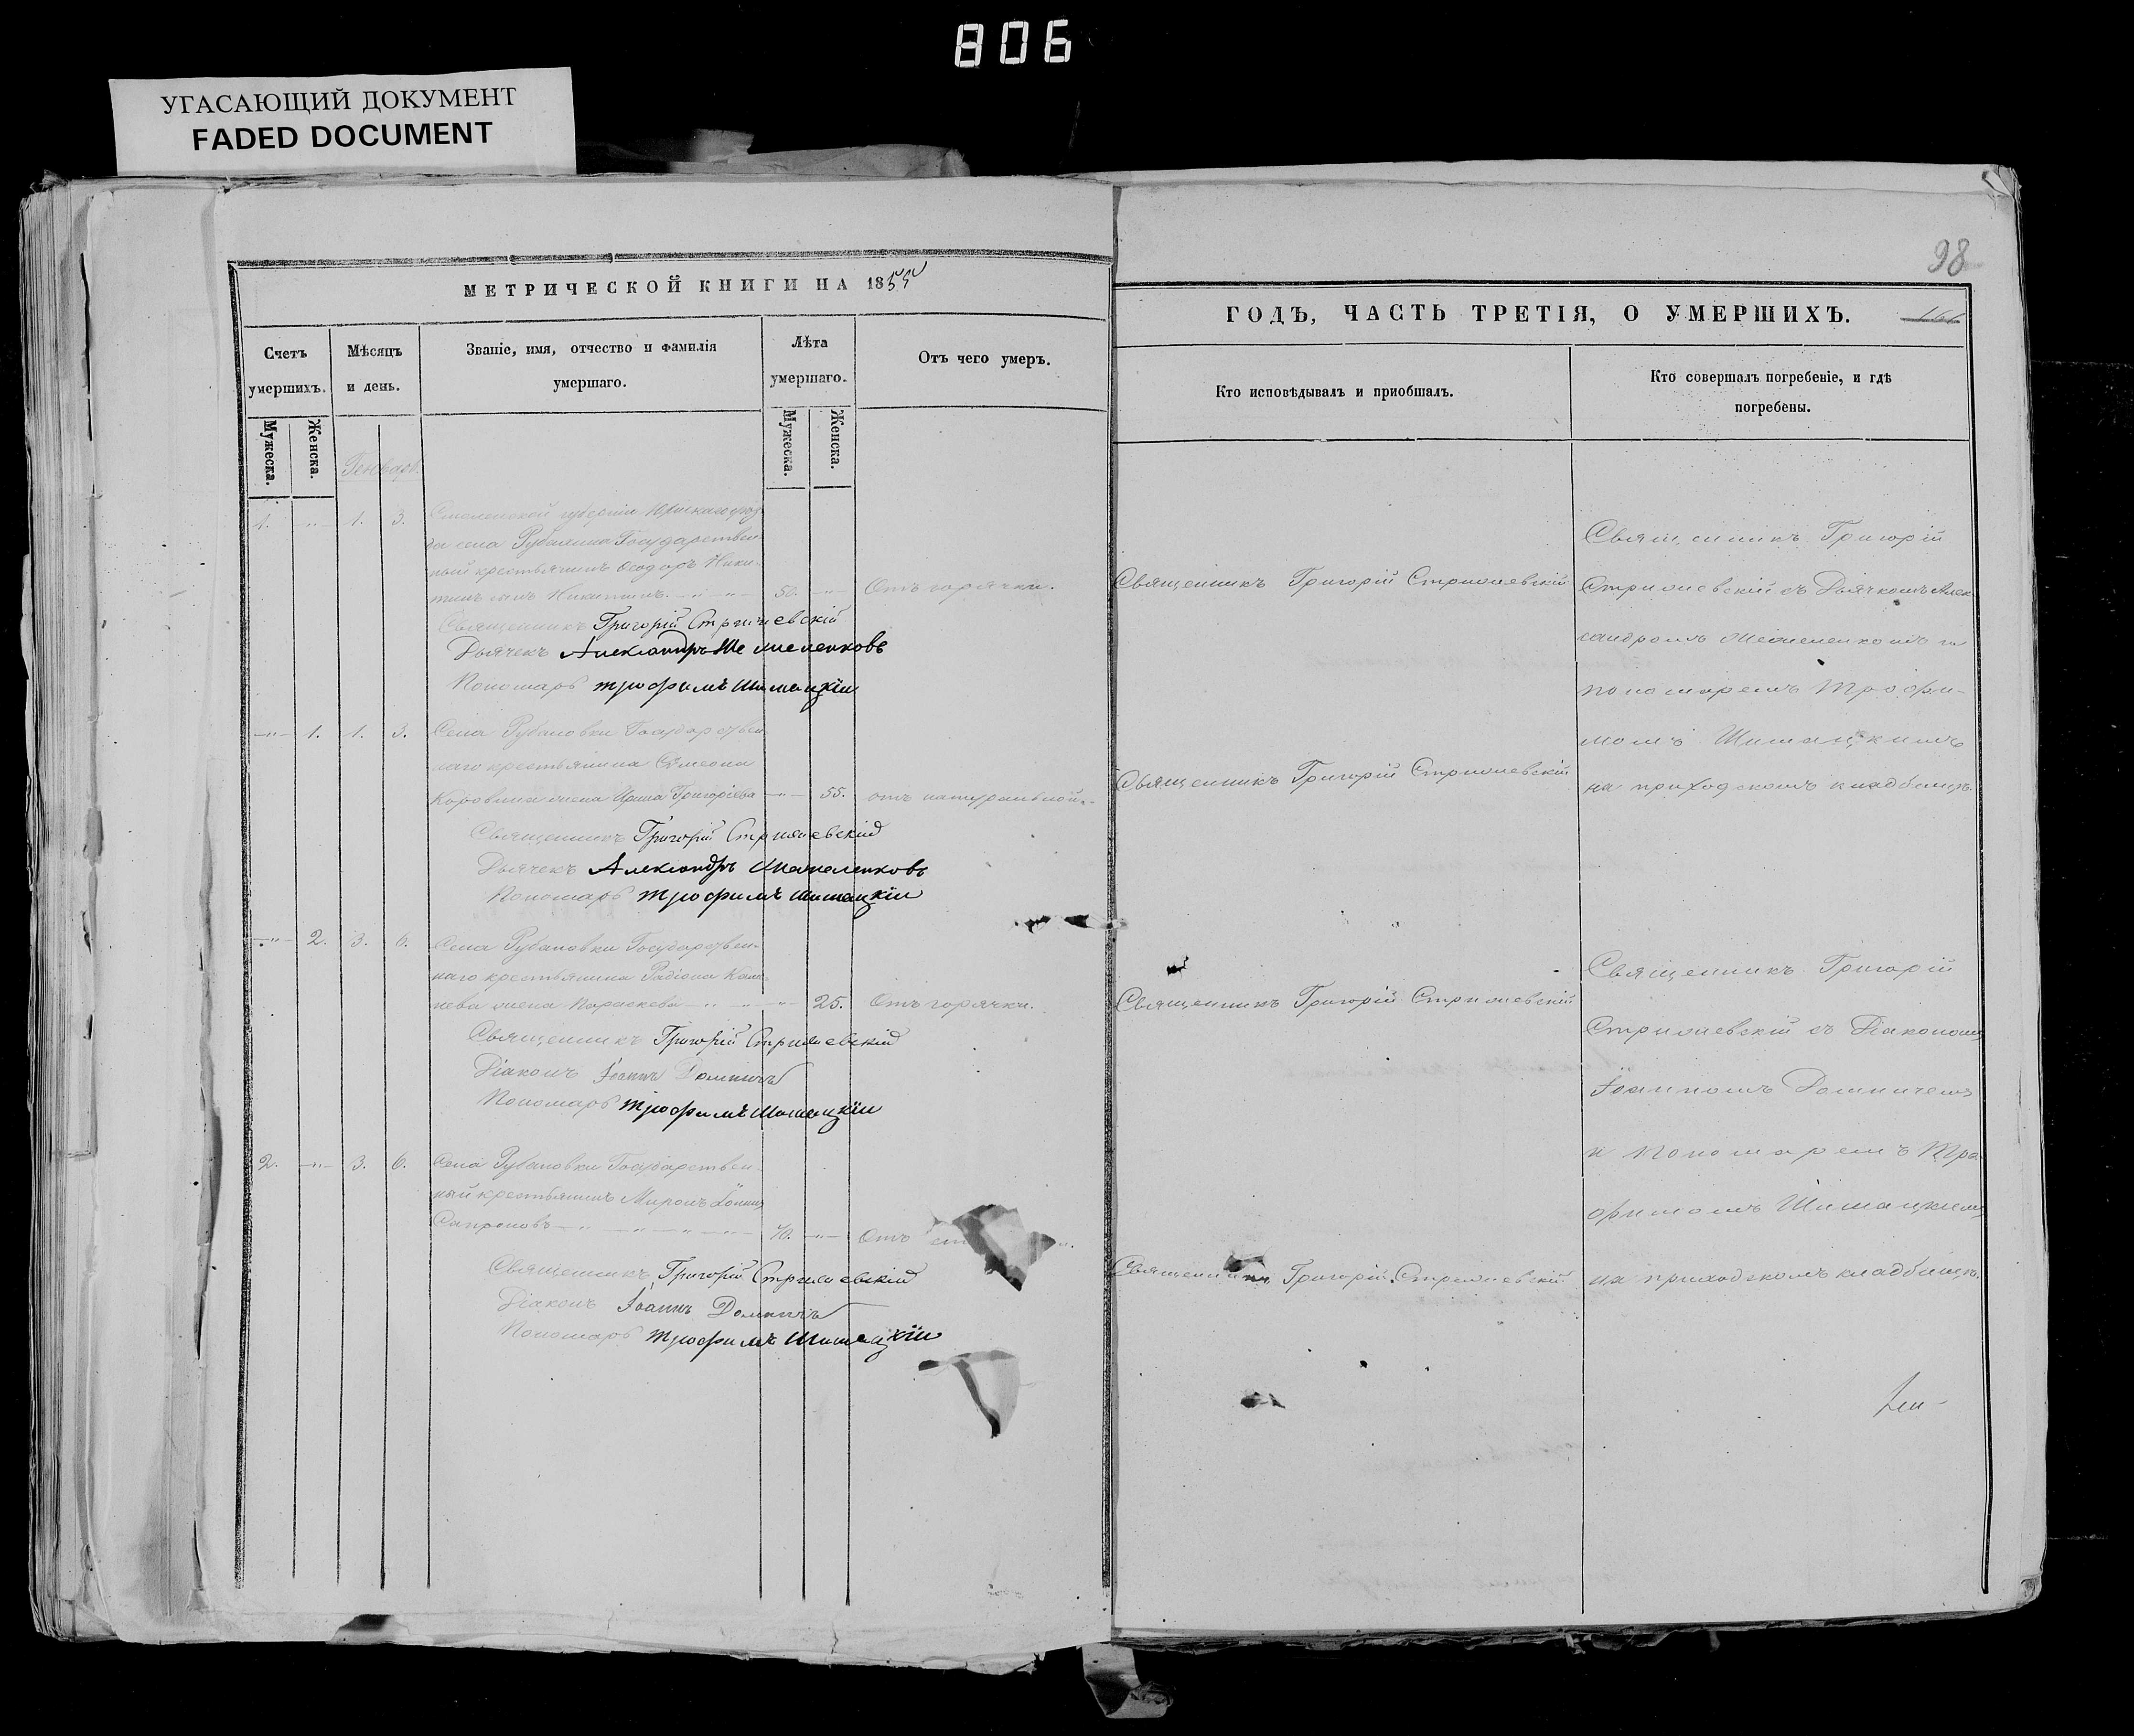 806
УГАСАЮЩИЙ ДОКУМЕНТ
FADED DOCUMENT
МЕТРИЧЕСКОЙ КНИГИ НА 1855
Счетъ умершихъ.
Мѣсяцъ и день.
Званіе, имя, отчество и фамилія умершаго.
Лѣта умершаго.
Отъ чего умеръ.
Мужеска.
Женска.
Мужеска.
Женска.
Генваръ.
1. -"- 1. 3. Смоленской губерніи
села Государствен-
ный крестьянинъ Ѳеодоръ Ники-
тинъ сынъ Никитинъ. 50. -"- Отъ горячки.
Священникъ Григорій Стрижевскій
Дьячекъ Александръ
Пономарь Трофимъ Шишацкій
-"- 1. 1. 3. Села Рубановки Государствен-
наго крестьянина Симеона
Коровина жена Ирина Григоріева -"- 55. отъ натуральной.
Священникъ Григорій Стрижевскій
Дьячекъ Александръ
Пономарь Трофимъ Шишацкій
-"- 2. 3. 6. Села Рубановки Государствен-
наго крестьянина Радіона
жена Параскева 25. Отъ горячки.
Священникъ Григорій Стрижевскій
Діаконъ Іоаннъ Домничъ
Пономарь Трофимъ Шишацкій
2. -"- 3. 6. Села Рубановки Государствен-
ный крестьянинъ Миронъ
Сапроновъ 70. -"- Отъ
Священникъ Григорій Стрижевскій
Діаконъ Іоаннъ Домничъ
Пономарь Трофимъ Шишацкій
98
ГОДЪ, ЧАСТЬ ТРЕТІЯ, О УМЕРШИХЪ.
Кто исповѣдывалъ и пріобщалъ.
Кто совершалъ погребеніе, и гдѣ погребены.
Священникъ Григорій Стрижевскій
Священникъ Григорій Стрижевскій
Священникъ Григорій Стрижевскій
Священникъ Григорій Стрижевскій
Священникъ Григорій
Стрижевскій съ Дьячкомъ Алек
сандромъ и
пономаремъ Трофи-
момъ Шишацкимъ
на приходскомъ кладбищѣ.
Священникъ Григорій
Стрижевскій съ Діакономъ
Іоанномъ Домничемъ
и пономаремъ Тро
фимомъ Шишацкимъ
на приходскомъ кладбищѣ.